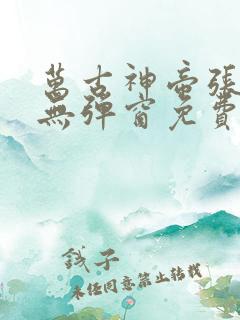 萬古神帝張
無彈窗免費
錢子
未經同意禁止轉載